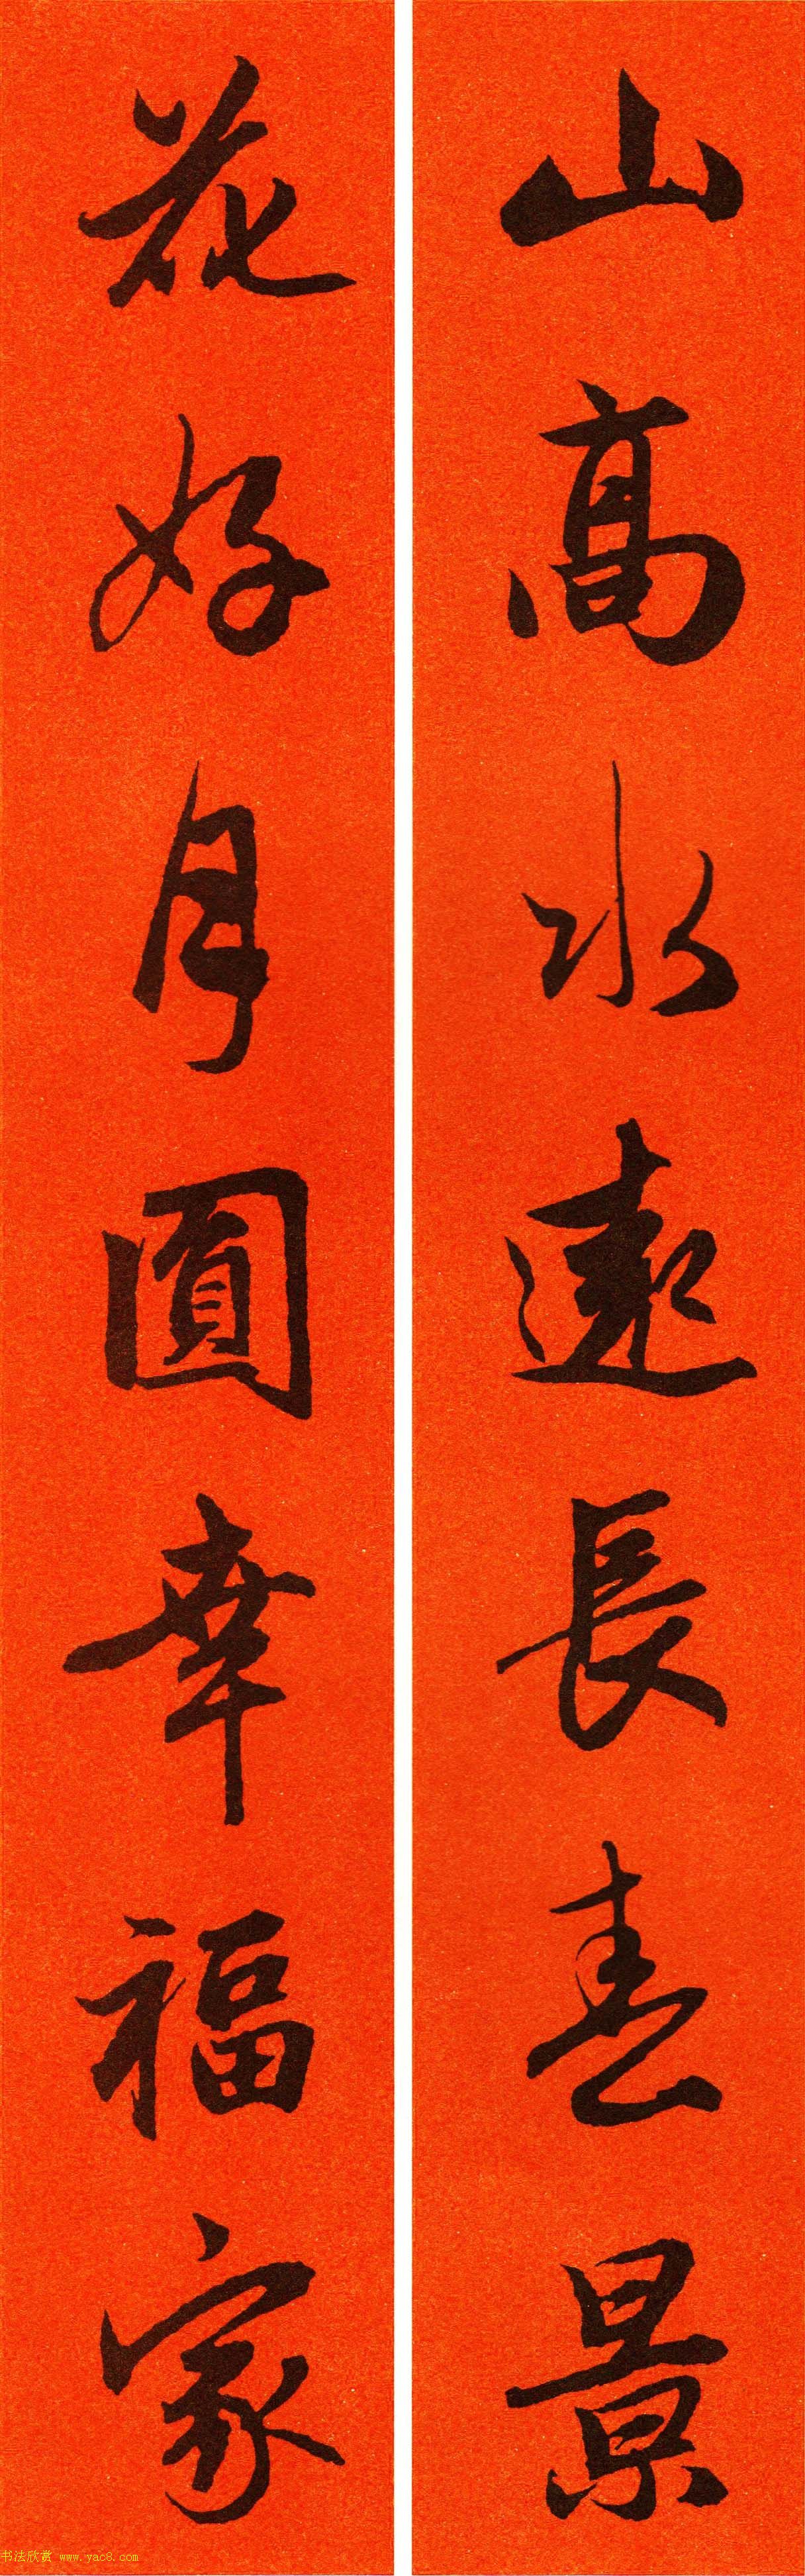 山高水遠長春景
花好月圓幸福家
书法欣赏 www.yac8.com